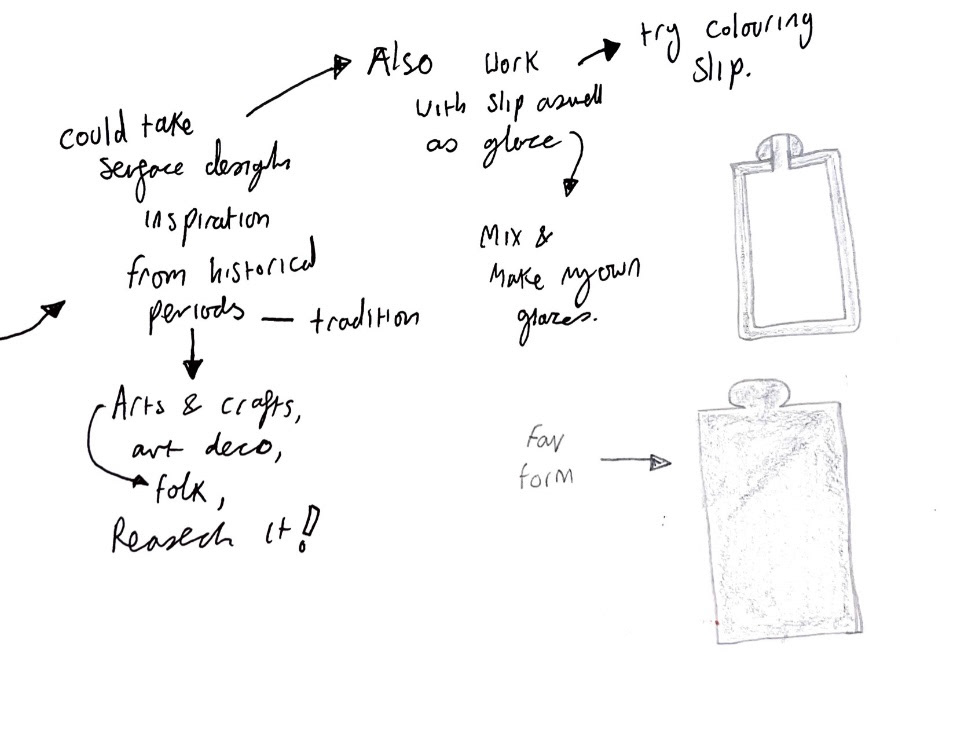 could take
serface designs
inspiration
from historical
periods — tradition
Arts & crafts,
art deco,
folk,
Reasech it!
Also work
with slip aswell
as glaze
try colouring
slip.
Mix &
Make my own
glazes.
Fav
form